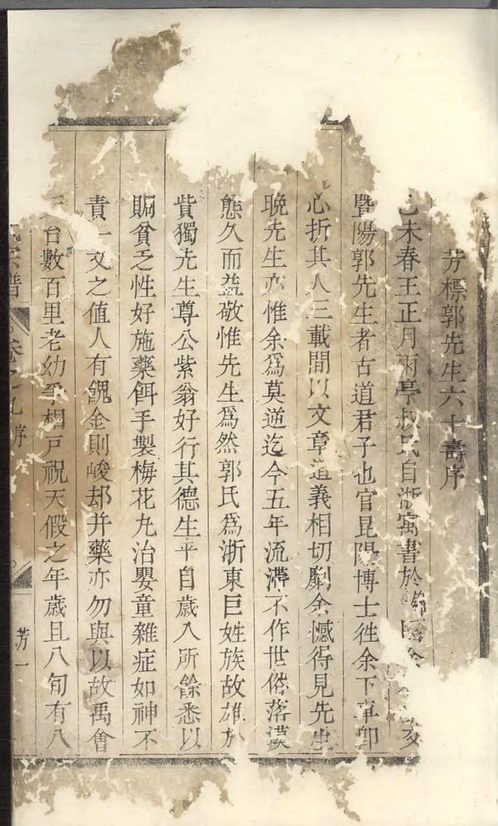 芳標郭先生六十壽序
未春王正月雨亭叔氏自浙寓書於
暨陽郭先生者古道君子也官昆陽博士徃余下車卽
心折其人三載間以文章道義相切劘余憾得見先生
晩先生亦惟余爲莫逆迄今五年流滯不作世俗落漠
態久而益敬惟先生爲然郭氏爲浙東巨姓族故雄於
貲獨先生尊公紫翁好行其德生平自歲入所餘悉以
賙貧乏性好施藥餌手製梅花丸治嬰童雜症如神不
責一文之值人有餽金則峻却并藥亦勿與以故禹會
台數百里老幼爭相戸祝天假之年歲且八旬有八
宗譜
序
芳一